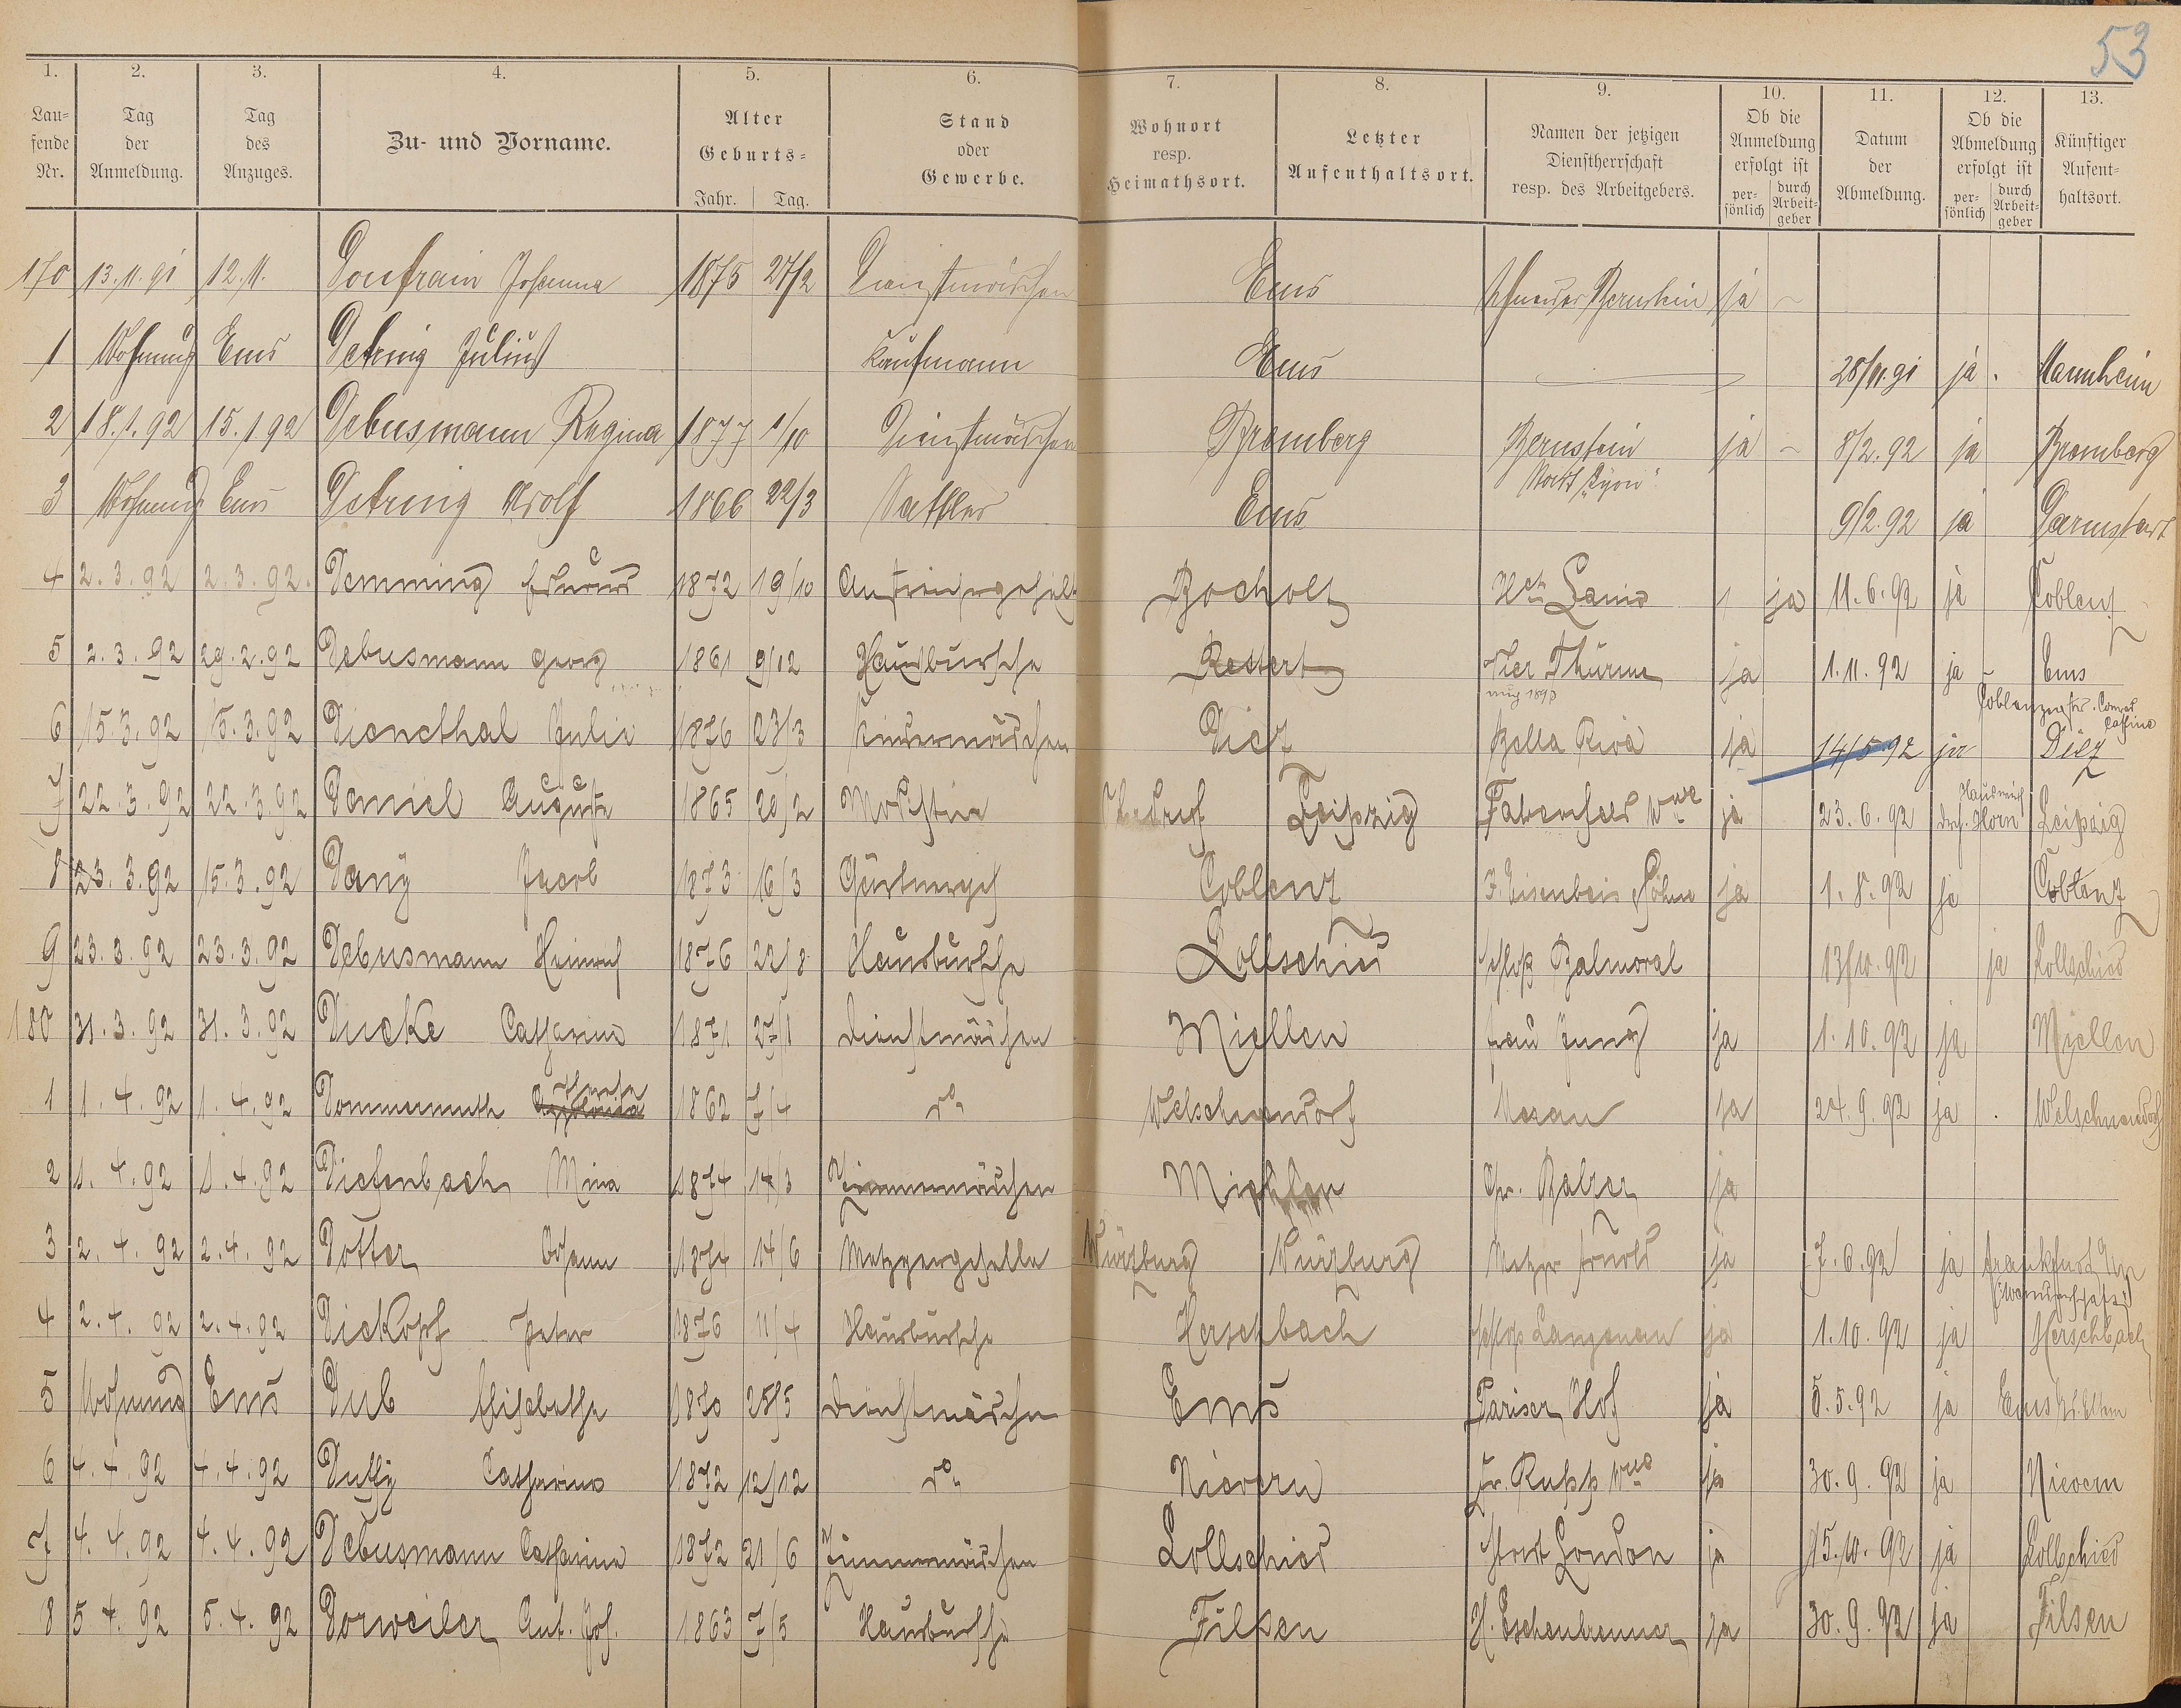 53
1. 2. 3. 4. 5. 6. 7. 8. 9. 10. 11. 12. 13.
Lau-
fende
Nr.
Tag
der
Anmeldung.
Tag
des
Anzuges.
Zu- und Vorname.
Alter
Geburts-
Jahr. Tag.
Stand
oder
Gewerbe.
Wohnort
resp.
Heimathsort.
Letzter
Aufenthaltsort.
Namen der jetzigen
Dienstherrschaft
resp. des Arbeitgebers.
Ob die
Anmeldung
erfolgt ist
per-
sönlich
durch
Arbeit-
geber
Datum
der
Abmeldung.
Ob die
Abmeldung
erfolgt ist
per-
sönlich
durch
Arbeit-
geber
Künftiger
Aufent-
haltsort.
170 13.11.91 12.11. Doufrain Johanna 1875 27/2 Dienstmädchen Ems Bernstein ja
1 Wohnung Ems Detring Julius Kaufmann Ems 28/11.91 ja Mannheim
2 18.1.92 15.1.92 Debusmann Regina 1877 1/10 Dienstmädchen Bremberg Bernstein ja 8/2.92 ja Bremberg
3 Wohnung Ems Detring Adolf 1866 22/3 Sattler Ems 9/2.92 ja Darmstadt
4 2.3.92 2.3.92. Demming Eduard 1872 19/10 Anstreichergehilfe Bocholt ja 11.6.92 ja Coblenz
5 2.3.92 29.2.92 Debusmann Georg 1861 9/12 Hausbursche Restert Vier Thürme ja 1.11.92 ja Ems
Coblenzerstr.
6 15.3.92 15.3.92 Dienethal Julie 1876 23/3 Kindermädchen Diez Bella Riva ja 14/5.92 ja Diez
7 22.3.92 22.3.92 Daniel Auguste 1865 20/2 Modistin Leipzig Wwe ja 23.6.92 Horn Leipzig
8 23.3.92 15.3.92 Dany Jacob 1873 16/3 Gärtnergeh Coblenz F. Eisenbeis Söhne ja 1.8.92 ja Coblenz
9 23.3.92 23.3.92 Debusmann Heinrich 1876 22/8 Hausbursche Lollschied Schloß Balmoral 13/10.92 ja Lollschied
180 31.3.92 31.3.92 Ducke Catharina 1871 27/1 Dienstmädchen Miellen Frau Jung ja 1.10.92 ja Miellen
1 1.4.92 1.4.92 Dommermuth 1862 7/4 do Welschneudorf Meran ja 24.9.92 ja Welschneudorf
2 1.4.92 1.4.92 Diefenbach Mina 1874 14/3 Zimmermädchen Miehlen Balzer ja
3 2.4.92 2.4.92 Dotter 1874 14/6 Metzgergeselle Würzburg Würzburg Metzger ja 7.6.92 ja Frankfurt
4 2.4.92 2.4.92 Diekopf Peter 1876 11/4 Hausbursche Herschbach Schloß Langenau ja 1.10.92 ja Herschbach
5 Wohnung Ems Dub Elisabethe 1870 25/5 Dienstmädchen Ems Pariser Hof ja 5.5.92 ja Ems
6 4.4.92 4.4.92 Catharina 1872 12/12 do Nievern Fr. Rupp Wwe ja 30.9.92 ja Nievern
7 4.4.92 4.4.92 Debusmann Catharina 1872 21/6 Zimmermädchen Lollschied Stadt London ja 15.10.92 ja Lollschied
8 5.4.92 5.4.92 Dorweiler Ant. Jos. 1863 7/5 Hausbursche Filsen H. Eschenbrenner ja 30.9.92 ja Filsen